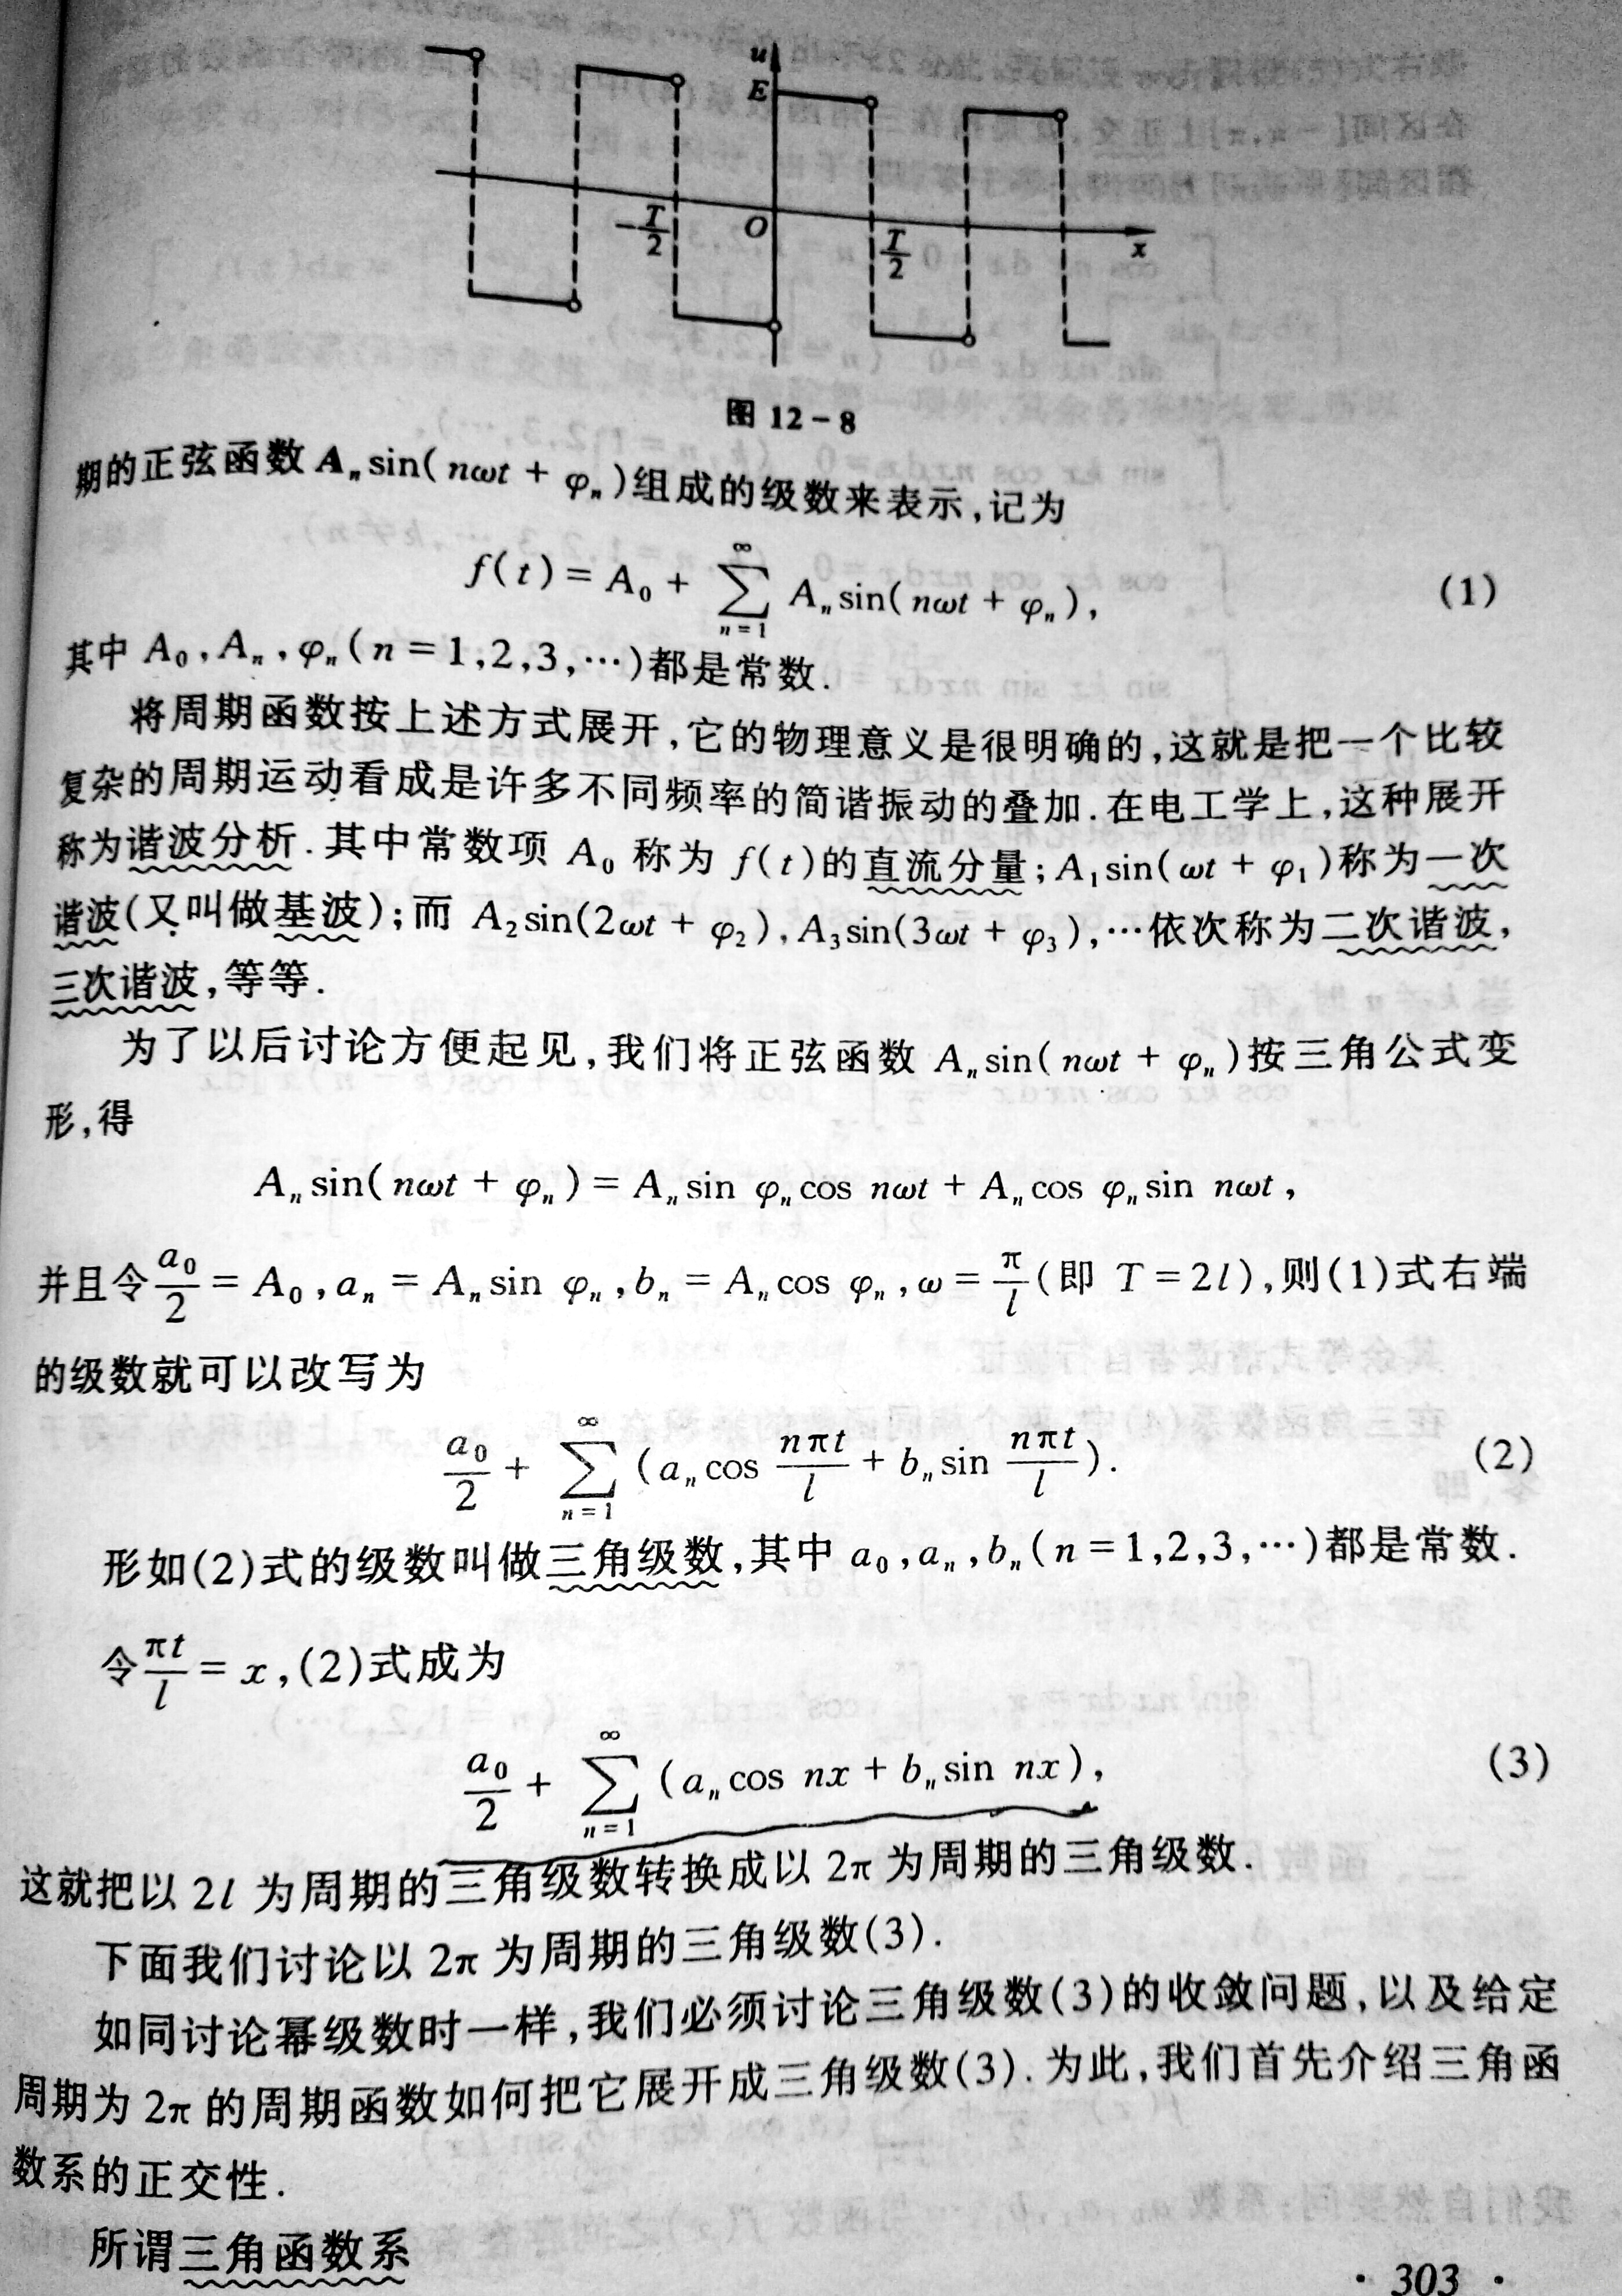 u
E
-T/2
O
T/2
x
图 12-8
期的正弦函数 Aₙsin(nωt + φₙ)组成的级数来表示,记为
f(t) = A₀ + ∑_{n=1}^{∞} Aₙsin(nωt + φₙ), (1)
其中 A₀,Aₙ,φₙ(n = 1,2,3,…)都是常数.
将周期函数按上述方式展开,它的物理意义是很明确的,这就是把一个比较
复杂的周期运动看成是许多不同频率的简谐振动的叠加.在电工学上,这种展开
称为谐波分析.其中常数项 A₀ 称为 f(t)的直流分量;A₁sin(ωt + φ₁)称为一次
谐波(又叫做基波);而 A₂sin(2ωt + φ₂),A₃sin(3ωt + φ₃),…依次称为二次谐波,
三次谐波,等等.
为了以后讨论方便起见,我们将正弦函数 Aₙsin(nωt + φₙ)按三角公式变
形,得
Aₙsin(nωt + φₙ) = Aₙsin φₙcos nωt + Aₙcos φₙsin nωt,
并且令 a₀/2 = A₀,aₙ = Aₙsin φₙ,bₙ = Aₙcos φₙ,ω = π/l(即 T = 2l),则(1)式右端
的级数就可以改写为
a₀/2 + ∑_{n=1}^{∞} (aₙcos nπt/l + bₙsin nπt/l). (2)
形如(2)式的级数叫做三角级数,其中 a₀,aₙ,bₙ(n = 1,2,3,…)都是常数.
令 πt/l = x,(2)式成为
a₀/2 + ∑_{n=1}^{∞} (aₙcos nx + bₙsin nx), (3)
这就把以 2l 为周期的三角级数转换成以 2π 为周期的三角级数.
下面我们讨论以 2π 为周期的三角级数(3).
如同讨论幂级数时一样,我们必须讨论三角级数(3)的收敛问题,以及给定
周期为 2π 的周期函数如何把它展开成三角级数(3).为此,我们首先介绍三角函
数系的正交性.
所谓三角函数系
· 303 ·